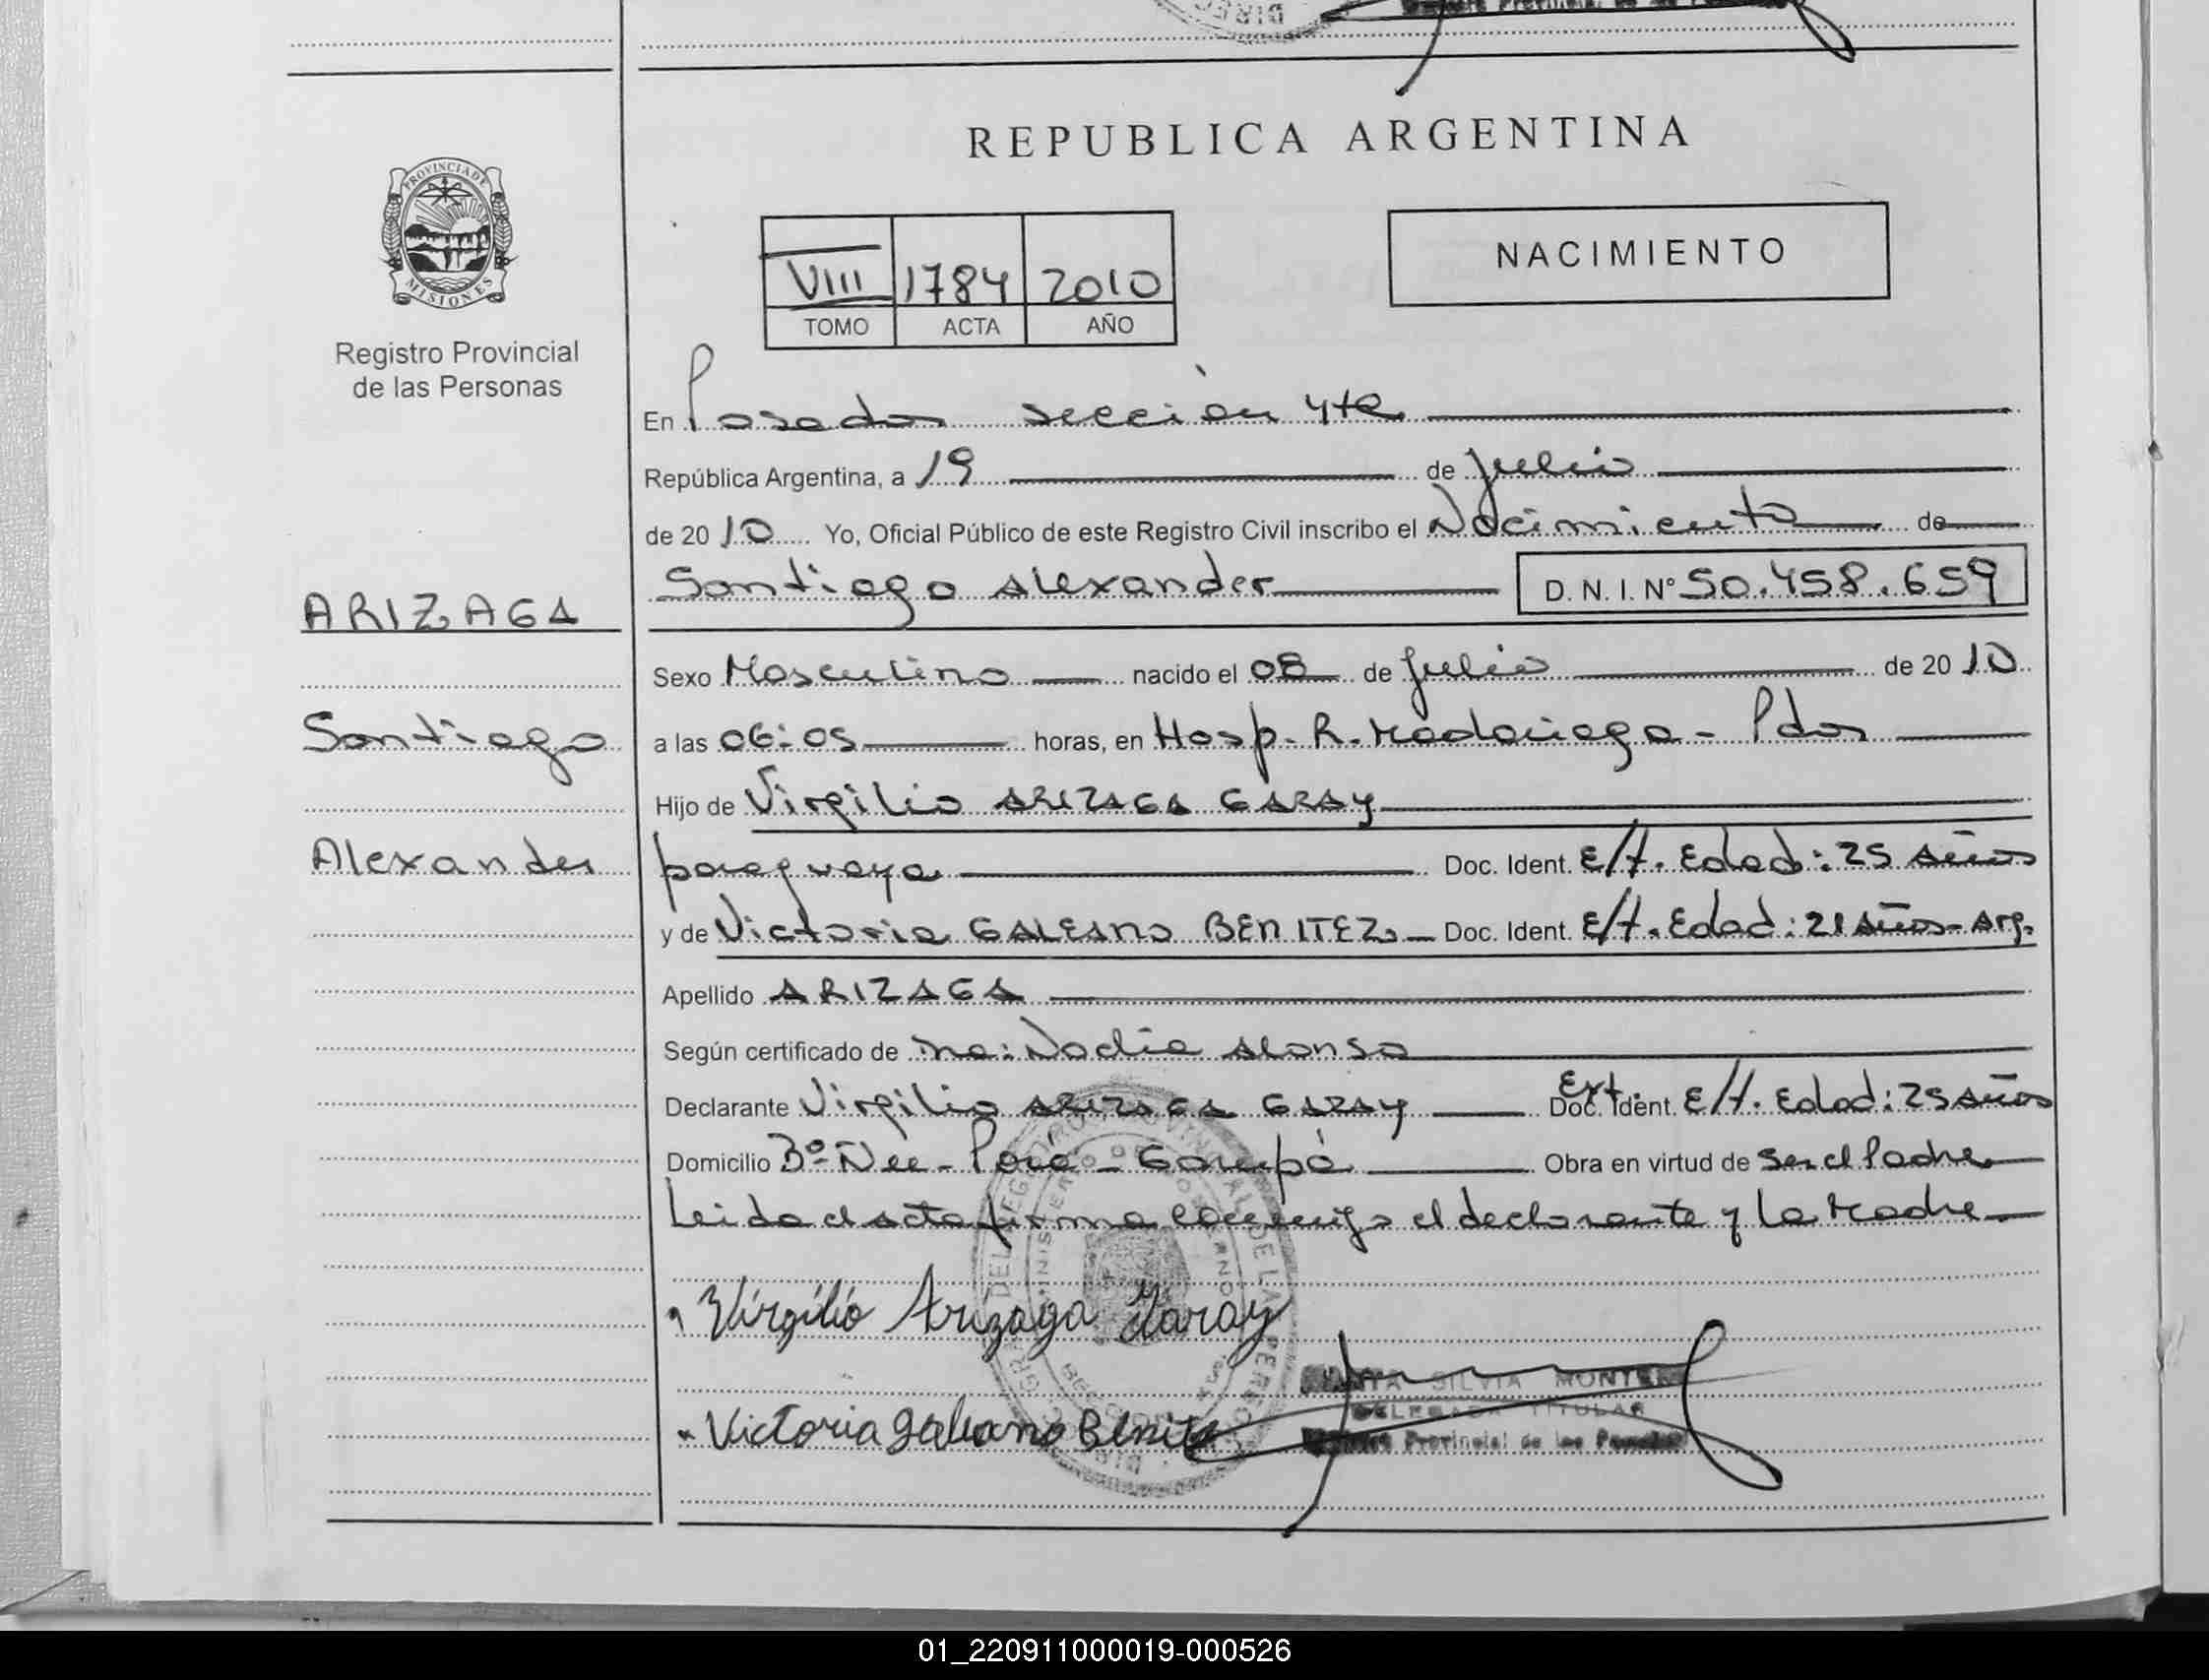 REPUBLICA ARGENTINA
PROVINCIA DE
MISIONES
Registro Provincial
de las Personas
VIII 1784 2010
TOMO ACTA AÑO
NACIMIENTO
En Posadas sección 4ta
República Argentina, a 19 de Julio
de 2010 Yo, Oficial Público de este Registro Civil inscribo el Nacimiento de
Santiago Alexander D. N. I. Nº 50.458.659
ARIZAGA
Santiago
Alexander
Sexo Masculino nacido el 08 de Julio de 2010
a las 06:05 horas, en Hosp. R. Madariaga - Pdas
Hijo de Virgilio ARIZAGA GARAY
paraguaya Doc. Ident. E/T. Edad: 25 Años
y de Victoria GALEANO BENITEZ Doc. Ident. E/T. Edad: 21 Años - Arg.
Apellido ARIZAGA
Según certificado de Nadia Alonso
Declarante Virgilio ARIZAGA GARAY Ext. Doc. Ident. E/T. Edad: 25 Años
Domicilio Bº Ñee - Porá - Garupá Obra en virtud de Ser el Padre
Leida el acta firma conmigo el declarante y la Madre
Virgilio Arizaga Garay
Victoria galeano Benitez
SILVIA
DELEGADA TITULAR
Provincial de las
01_220911000019-000526